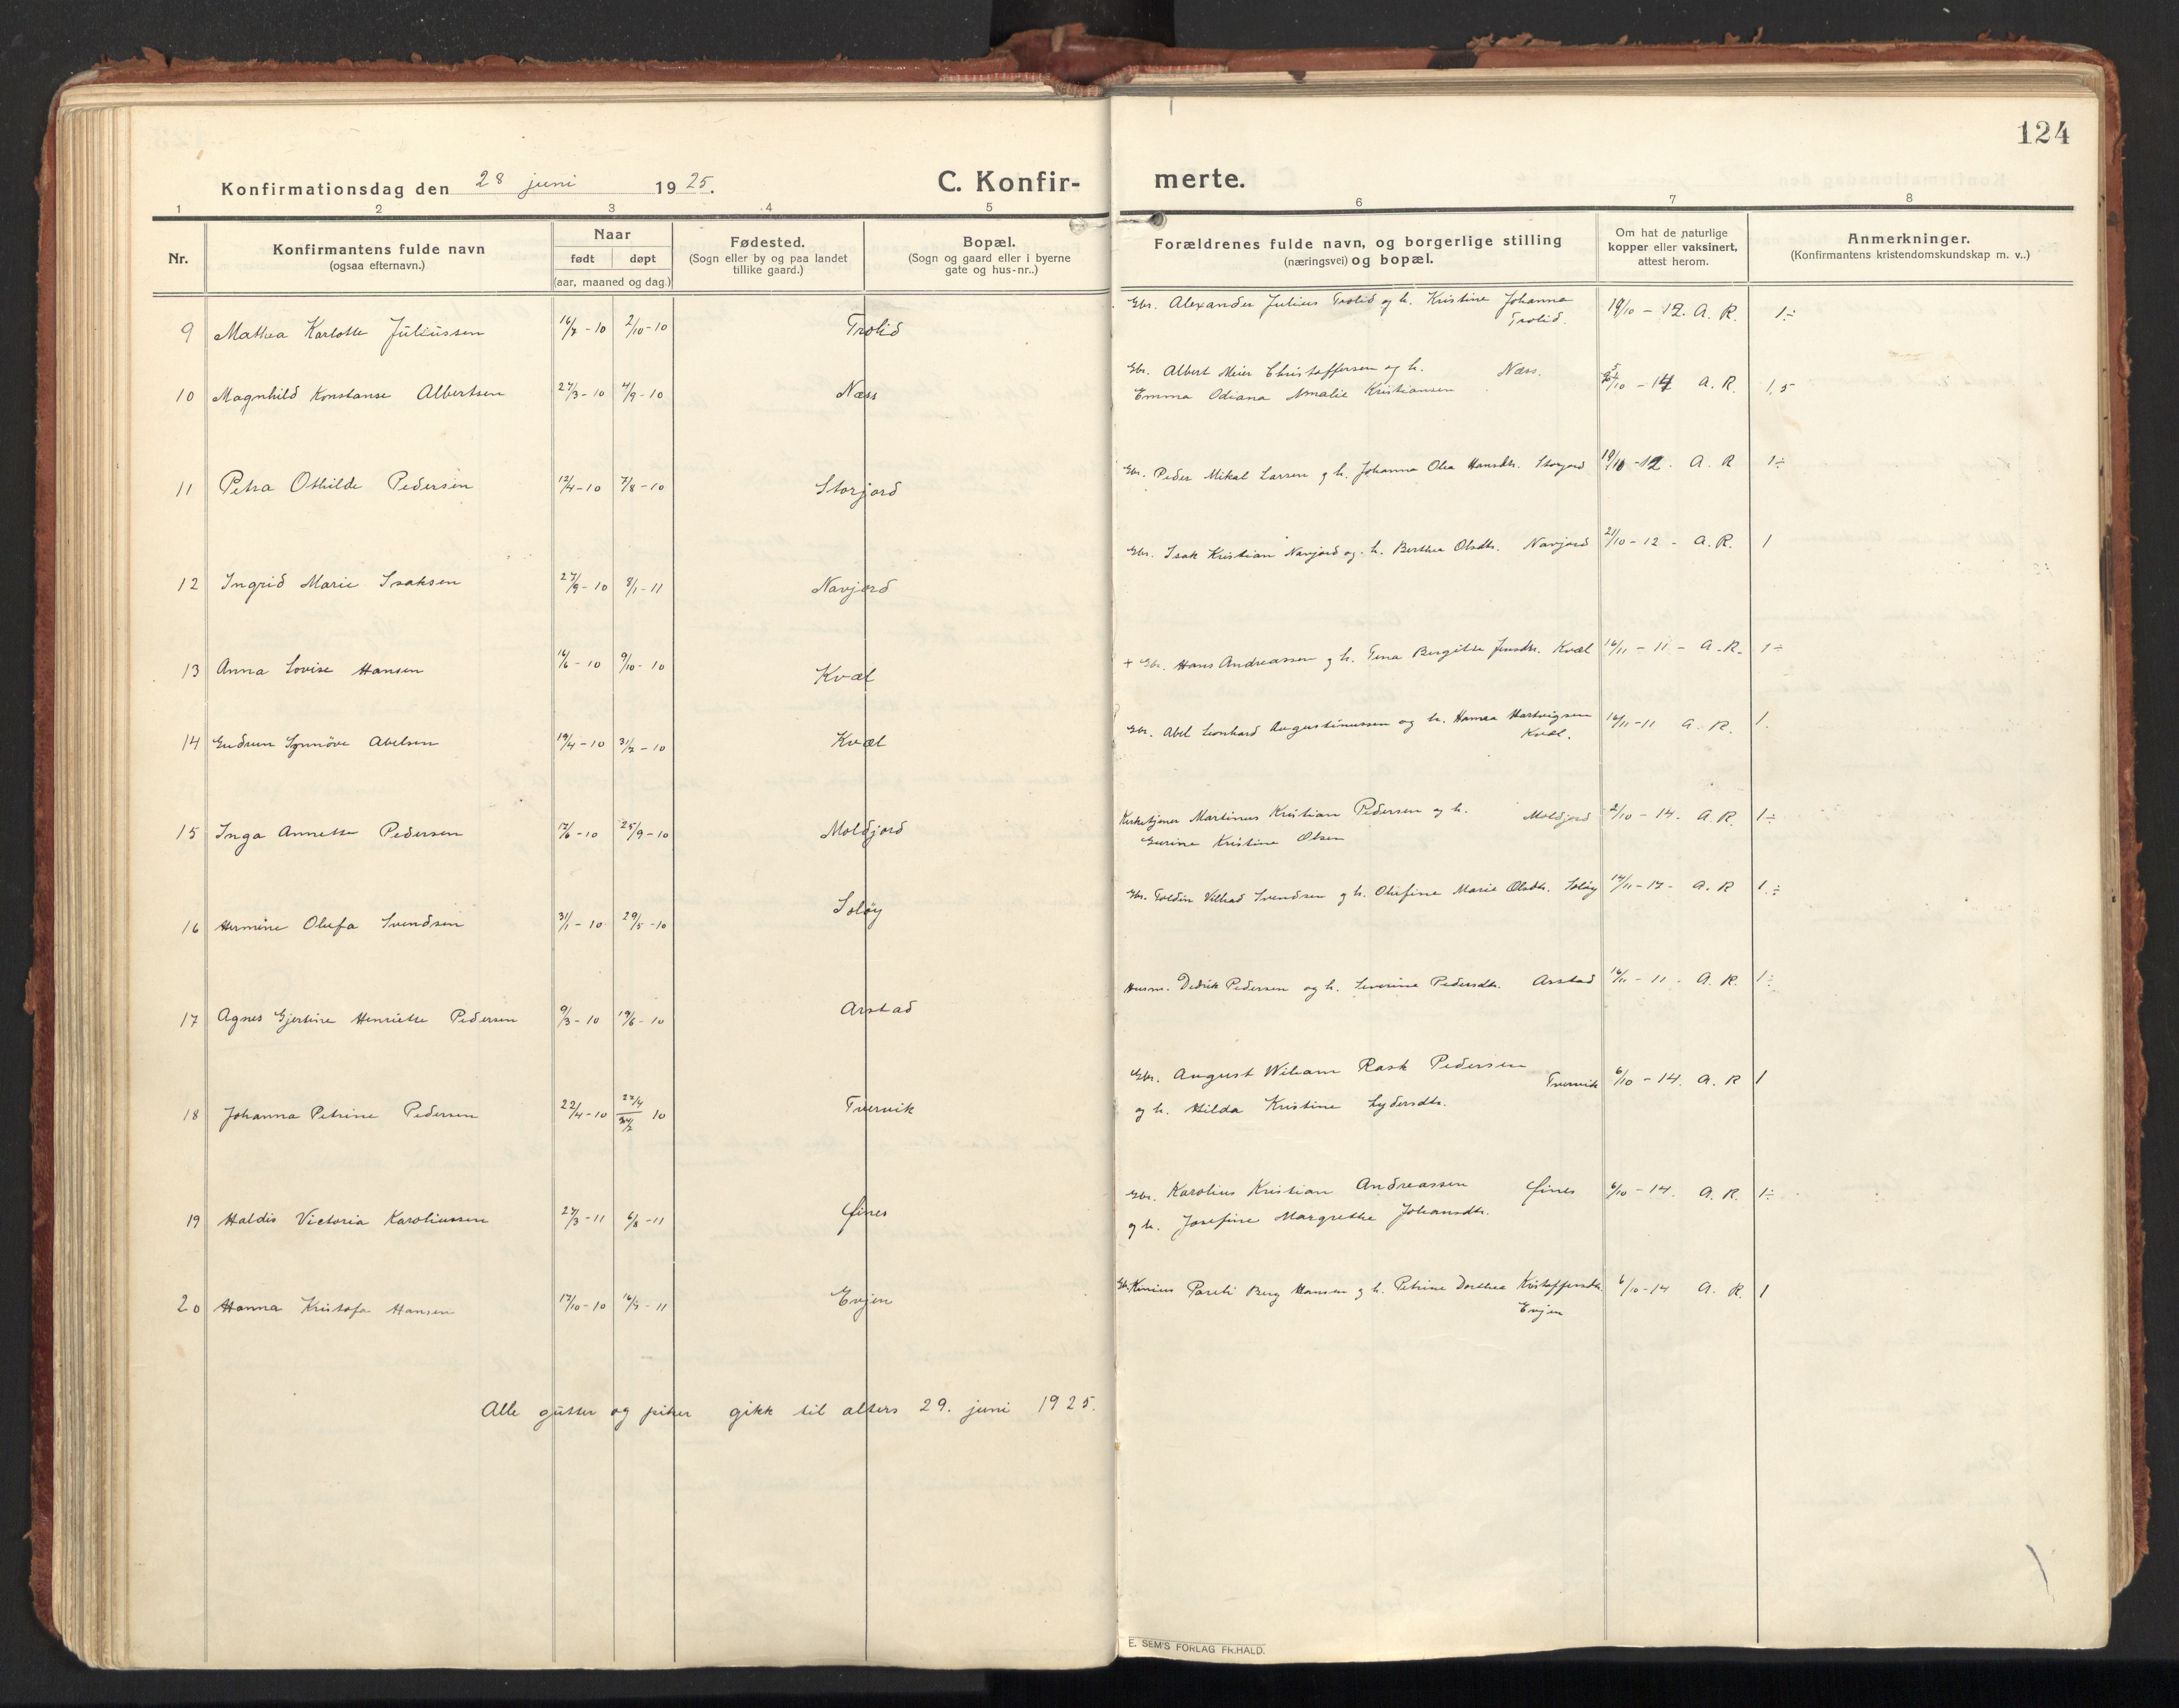 124
Konfirmationsdag den 28 juni 1925.
C. Konfir-
merte.
1 2 3 4 5 6 7 8
Nr.
Konfirmantens fulde navn
(ogsaa efternavn.)
Naar
født døpt
(aar, maaned og dag.)
Fødested.
(Sogn eller by og paa landet
tillike gaard.)
Bopæl.
(Sogn og gaard eller i byerne
gate og hus-nr..)
Forældrenes fulde navn, og borgerlige stilling
(næringsvei) og bopæl.
Om hat de naturlige
kopper eller vaksinert,
attest herom.
Anmerkninger.
(Konfirmantens kristendomskundskap m. v..)
9 Mathea Karlotte Juliussen 16/7 - 10 2/10 - 10 Trolid
Gbr. Alexander Julius Trolid og h. Kristine Johanna
Trolid. 19/10 - 12. A. R. 1÷
10 Magnhild Konstanse Albertsen 27/3 - 10 4/9 - 10 Næss
Gbr. Albert Meier Christoffersen og h. Næss.
Emma Odiana Amalie Kristiansen - 14 A. R. 1,5
11 Petra Othilde Pedersen 12/4 - 10 7/8 - 10 Storjord
Gbr. Peder Mikal Larsen g h. Johanna Olea Hansdtr. Storjord 19/10 - 12. A. R 1÷
12 Ingrid Marie Isaksen 27/9 - 10 8/1 - 11 Navjord
Gbr. Isak Kristian Navjord og h. Berthea Olsdtr. Navjord 21/10 - 12 - A. R. 1
13 Anna Lovise Hansen 16/6 - 10 9/10 - 10 Kvæl
+ Gbr. Hans Andreassen g h. Tina Bergitte Jensdtr. Kvæl 16/11 - 11 - A. R. 1÷
14 Gudrun Synnöve Abelsen 19/4 - 10 31/7 - 10 Kvæl
Gbr. Abel Leonhard Augustinussen og h. Hanna Hartvigsen
Kvæl. 16/11 - 11 A. R. 1.
15 Inga Annette Pedersen 17/6 - 10 25/9 - 10 Moldjord
Kirketjener Martinus Kristian Pedersen og h. Moldjord 2/10 - 14. A. R. 1÷
Gurine Kristine Olsen
16 Hermine Olufa Svendsen 31/1 - 10 29/5 - 10 Soløy
Gbr. Villiad Svendsen g h. Olufine Marie Olsdtr. Soløy A. R 1.÷
17 Agnes Gjertine Henriette Pedersen 9/3 - 10 19/6 - 10 Arstad
Husm. Didrik Pedersen og h. Severine Pedersdtr. Arstad 16/11 - 11 - A. R. 1÷
18 Johanna Petrine Pedersen 22/4 - 10 10 Tvervik
Gbr. August Wiliam Rask Pedersen
og h. Hilda Kristine Lydersdtr. Tvervik 6/10 - 14. A. R 1
19 Haldis Victoria Karoliussen 27/3 - 11 6/8 - 11 Øines
Gbr. Karolius Kristian Andreassen Øines 6/10 - 14. A. R. 1÷
g h. Josefine Margrethe Johansdtr.
20 Hanna Kristofa Hansen 17/10 - 10 16/9 - 11 Evjen
Gbr. Pareli Berg Hansen g h. Petrine Dorthea Kristoffersdtr.
Evjen 6/10 - 14 A. R. 1
Alle gutter og piker gikk til alters 29. juni 1925.
E. SEM'S FORLAG FR.HALD.